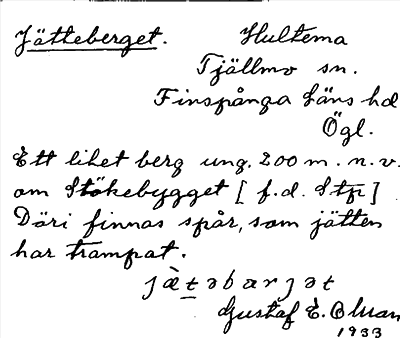 Jätteberget. Hultema
Tjällmo sn.
Finspånga Läns hd
Ögl.
Ett litet berg ung. 200 m. n.v.
om Stökebygget [ f.d. Stp ]
Däri finnas spår, som jätten
har trampat.
Gustaf E. Olsson
1933